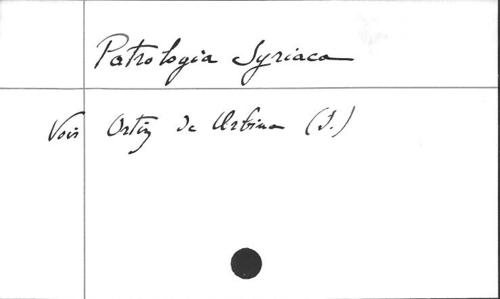 Patrologia Syriaca
Voir Ortiz de Urbina (I.)